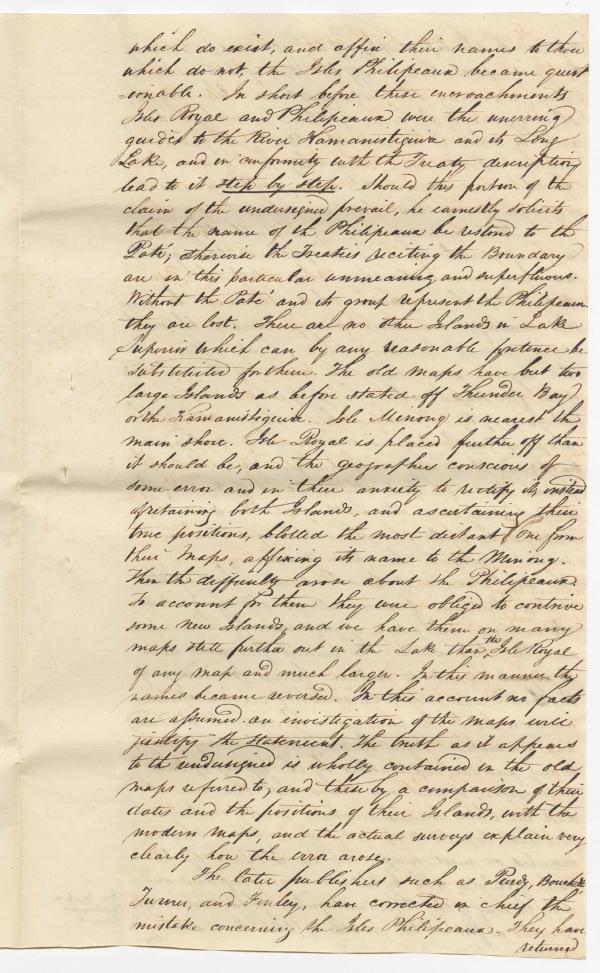 which do exist, and affix their names to those
which do not, the Isles Philipeaux became quest
=onable. In short before these encroachments
Isles Royal and Philipeaux were the unerring
guides to the River Kamanistiguia and its Long
Lake, and in conformity with the Treaty description
lead to it step by step. Should this portion of the
claim of the undersigned prevail, he earnestly solicits
that the name of the Philipeaux be restored to the
Paté; otherwise the Treaties reciting the Boundary
are in this particular unmeaning and superfluous.
Without the Paté and its group represent the Philipeaux
they are lost. There are no other Islands in Lake
Superior which can by any reasonable pretence be
substituted for them. The old maps have but two
large Islands as before stated off Thunder Bay
or the Kamanistiguia. Isle Minong is nearest the
main shore. Isle Royal is placed further off than
it should be, and the geographers conscious of
some error and in their anxiety to rectify it, instead
of retaining both Islands, and ascertaining their
true positions, blotted the most distant one from
their maps, affixing its name to the Minong.
Then the difficulty arose about the Philipeaux.
To account for them they were obliged to contrive
some new Islands, and we have them on many
maps still further out in the Lake than the Isle Royal
of any map and much larger. In this manner the
names became reversed. In this account no facts
are assumed. an investigation of the maps will
justify the statement. The truth as it appears
to the undersigned is wholly contained in the old
maps referred to, and these by a comparison of their
dates and the positions of their Islands, with the
modern maps, and the actual surveys explain very
clearly how the error arose.
The later publishers such as Purdy, Bouchette
Turner, and Finley, have corrected in chief the
mistake concerning the Isles Philipeaux. They have
returned